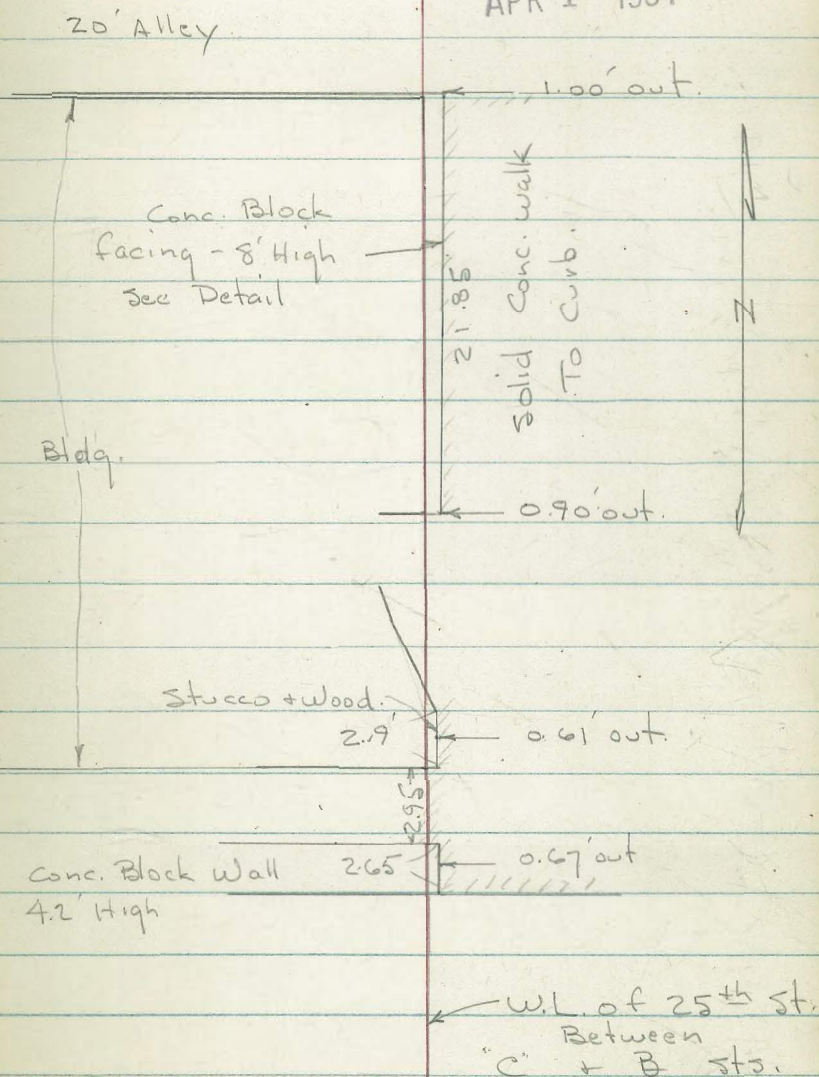 20' Alley
1.00' out.
Conc. Block
facing - 8' High
See Detail
21.85
Solid Conc. walk
To Curb.
N
Bldg.
0.90' out.
Stucco + Wood.
2.9'
0.61' out.
2.95
Conc. Block Wall
4.2' High
2.65
0.67' out
W.L. of 25th St.
Between
"C" + B sts.